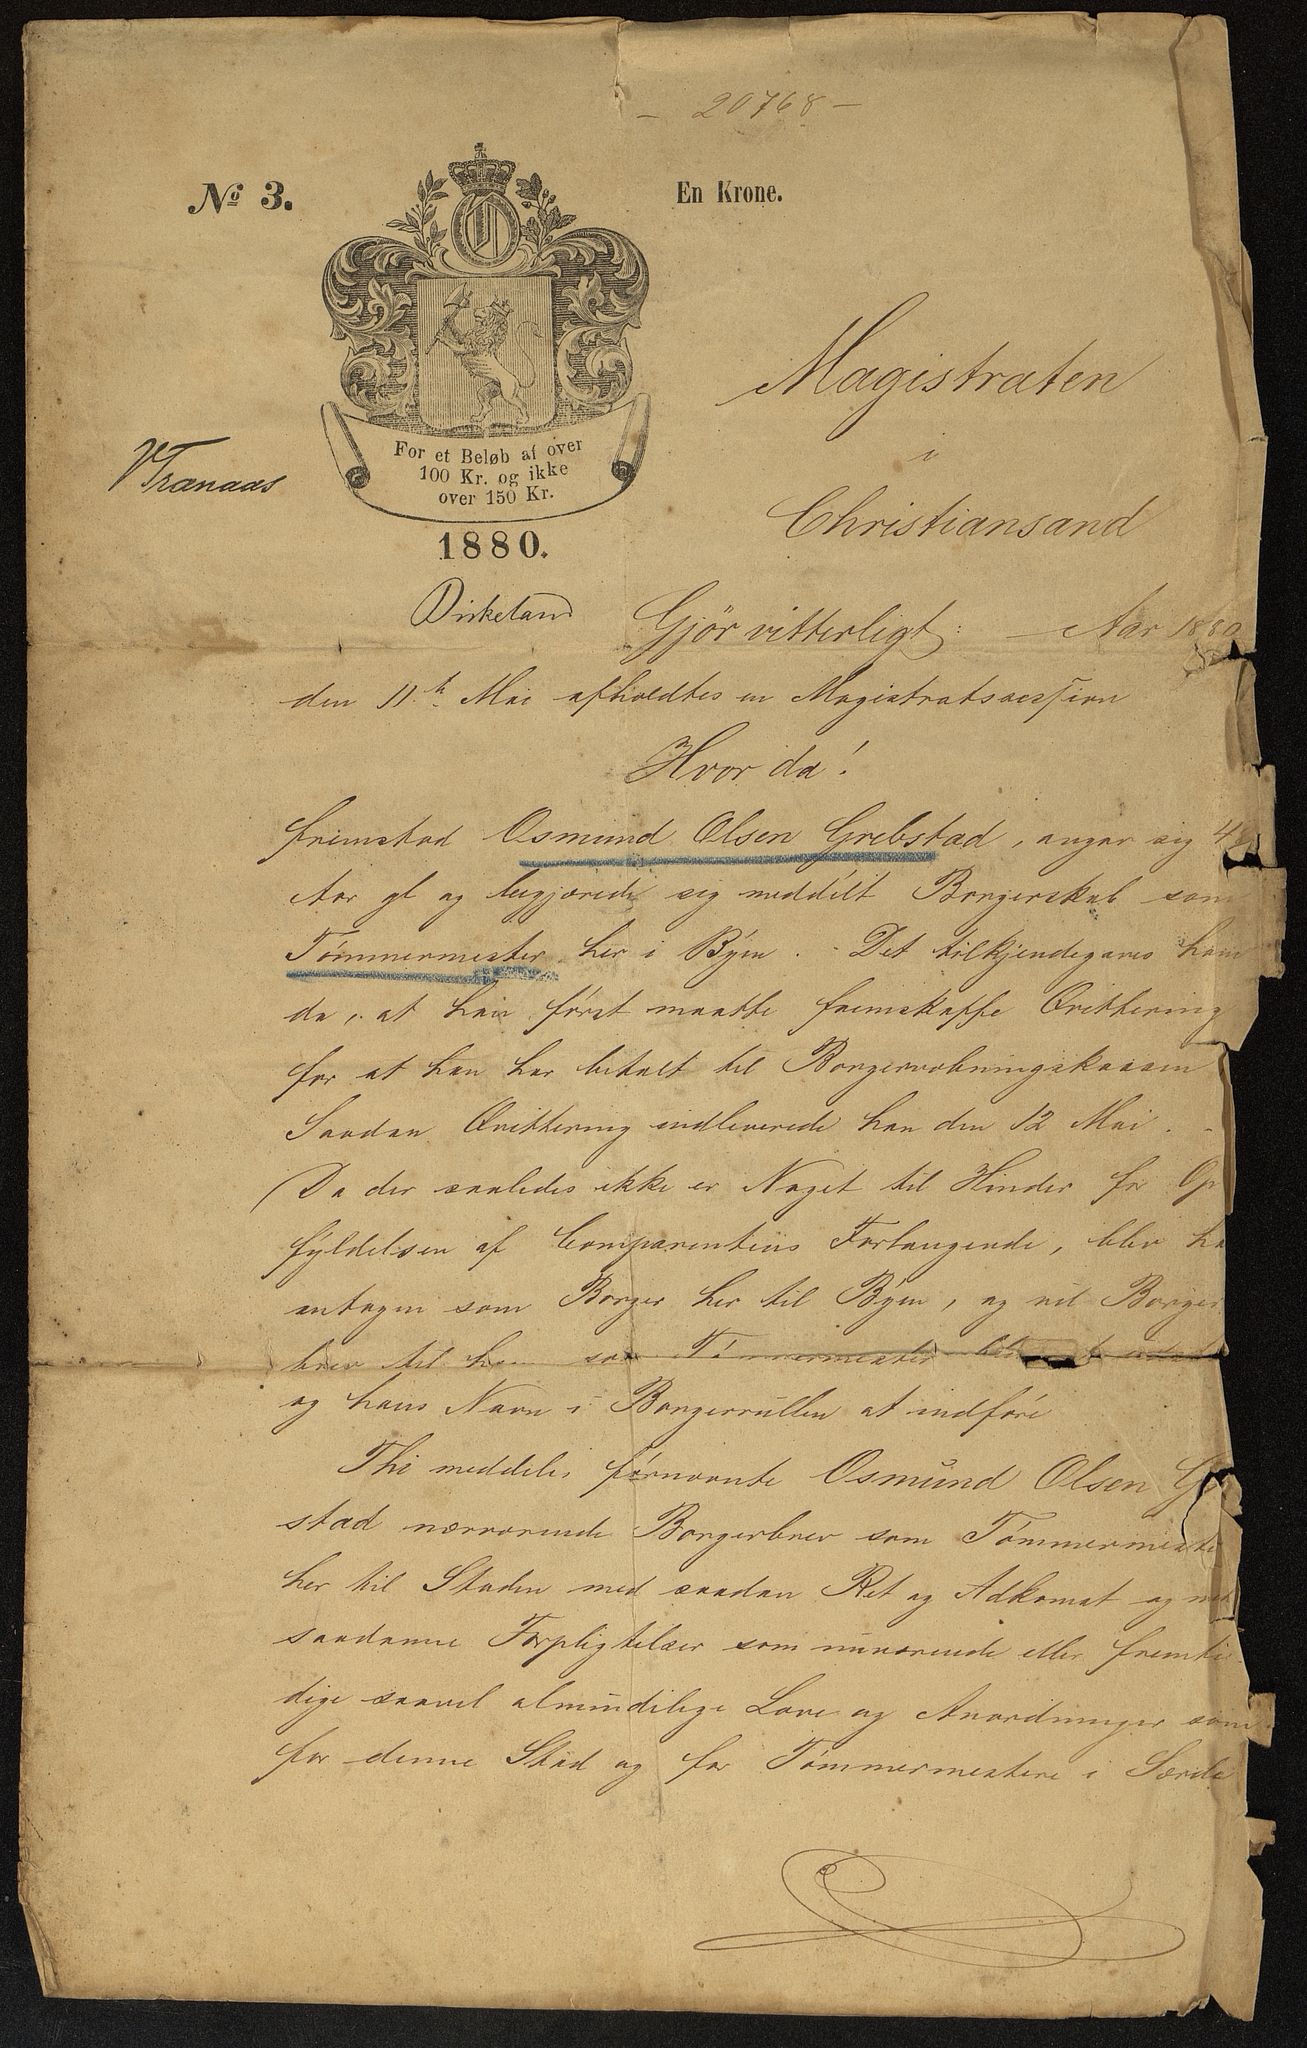 - 20768 -
No 3.
En Krone.
For et Beløb af over
100 Kr. og ikke
over 150 Kr.
1880.
VTranaas
Magistraten
i
Christiansand
Gjör vitterligt: Aar 1880
den 11te Mai afholdtes en Magistratsession
Hvor da!
fremstod Osmund Olsen Grebstad, angav sig
Aar gl og begjærede sig meddelt Borgerskab som
Tømmermester her i Byen. Det tilkjendegaves ham
da, at han først maatte fremskaffe Qvittering
for at han har betalt til Borgervæbningskassen
Saadan Qvittering indleverede han den 12 Mai. -
Da der saaledes ikke er Noget til Hinder for Op
fyldelsen af Comparentens Forlangende, blev ha
antagen som Borger her til Byen, og vil Borger
brev til ham som Tømmermester blive at
og hans Navn i Borgerrullen at indføre
Thi meddeles førnævnte Osmund Olsen G
stad nærværende Borgerbrev som Tømmermeste
her til Staden med saadan Ret og Adkomst og med
saadanne Forpligtelser som nuværende eller fremti
dige saavel almindelige Love og Anordninger som
for denne Stad og for Tømmermestere i Særde